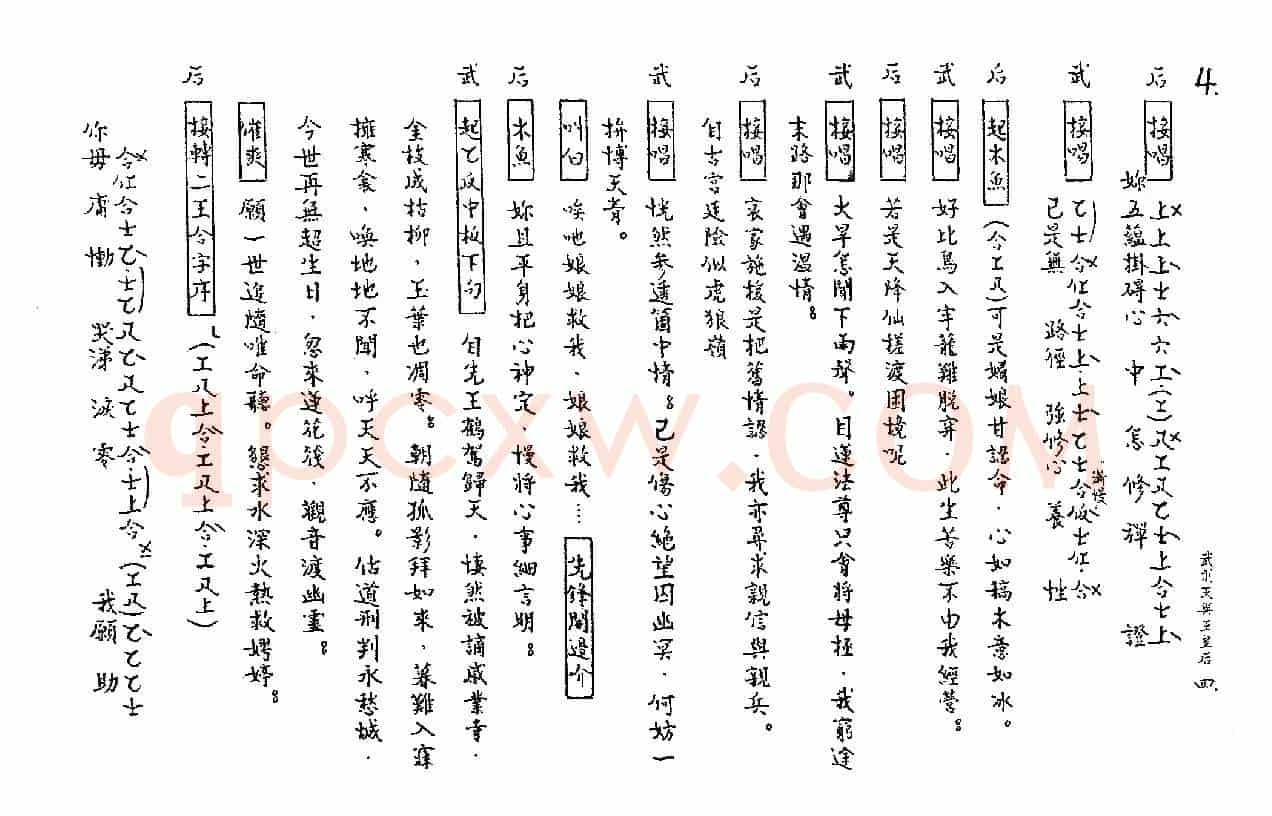 4.
武則天與王皇后 四.
后 接唱 上上上士六六工.(工)尺工尺乙士上合士上
妳五蘊掛碍心中怎修禪證
武 接唱 乙士合仜合士上.上士乙士合伬士仜.合
漸慢
已是無路徑強修心養性
后 起木魚 (合工尺)可是媚娘甘認命.心如槁木意如冰。
武 接唱 好比鳥入牢籠難脫弃.此生苦樂不由我經營。
后 接唱 若是天降仙槎渡困境呢
武 接唱 大旱怎聞下雨聲。目蓮法尊只會將母拯.我窮途
末路那會遇温情。
后 接唱 哀家施援是把舊情認.我亦尋求親信與親兵。
自古宫廷險似虎狼嶺
武 接唱 恍然參透箇中情。已是傷心絶望囚幽冥.何妨一
拚博天青。
叫白 唉吔娘娘救我、娘娘救我… 先鋒關邊介
后 木魚 妳且平身把心神定.慢將心事細言明。
武 起乙反中板下句 自先王鶴駕歸天.悽然被謫感業寺.
金枝成枯柳，玉葉也凋零。朝隨孤影拜如來，暮難入寐
擁寒衾、喚地地不聞、呼天天不應。佔道刑判永愁城.
今世再無超生日.忽來蓮花筏、觀音渡幽靈。
催爽 願一世追隨唯命聽。懇求水深火熱救娉婷。
后 接轉二王合字序 (工尺上合.工尺上合.工尺上)
合仜合士乙.士乙尺乙尺乙士合.士上合(工尺)乙乙乙士
你毋庸慟哭涕淚零 我願助